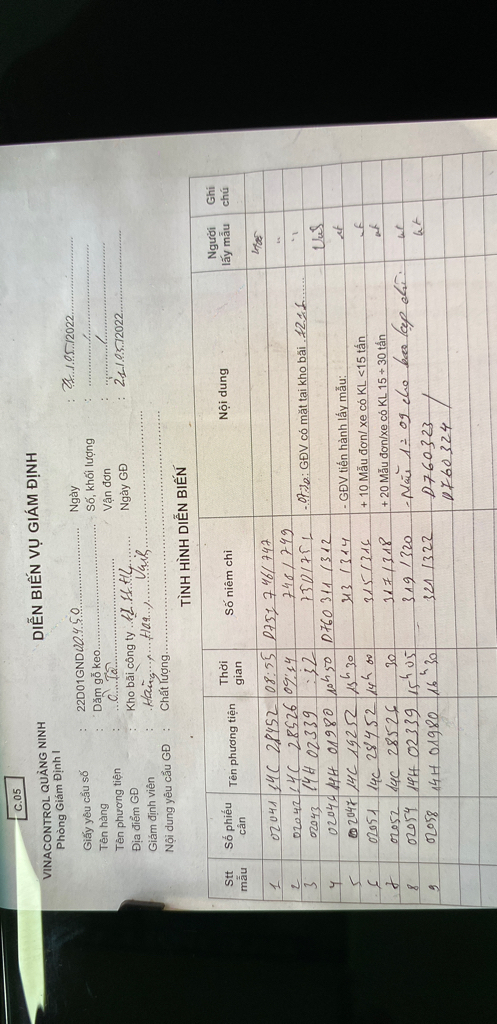 C.05
VINACONTROL QUẢNG NINH
Phòng Giám Định I
DIỄN BIẾN VỤ GIÁM ĐỊNH
Giấy yêu cầu số : 22D01GND Ngày : 21/05/2022
Tên hàng : Dăm gỗ keo Số, khối lượng :
Tên phương tiện : Ô Tô Vận đơn :
Địa điểm GĐ : Kho bãi công ty Ngày GĐ : 21/05/2022
Giám định viên :
Nội dung yêu cầu GĐ : Chất lượng
TÌNH HÌNH DIỄN BIẾN
Stt mẫu Số phiếu cân Tên phương tiện Thời gian Số niêm chì Nội dung Người lấy mẫu Ghi chú
1 02041 14C 28452 08:55 D757 746/747
2 02042 14C 28526 09:14 748/749 "
3 02043 14H 02339 750/751 - 07h20: GĐV có mặt tại kho bãi "
4 14H 01980 10h50 D760 311/312
5 02047 14C 19252 13h30 313/314 - GĐV tiến hành lấy mẫu:
6 02051 14C 28452 14h00 315/316 + 10 Mẫu đơn/ xe có KL <15 tấn
7 02052 14C 28526 30 317/318 + 20 Mẫu đơn/xe có KL 15 ÷ 30 tấn
8 02054 14H 02339 15h05 319/320 - Mẫu 1 ÷ 09 cho
9 02058 14H 01980 16h30 321/322 D760323
D760324